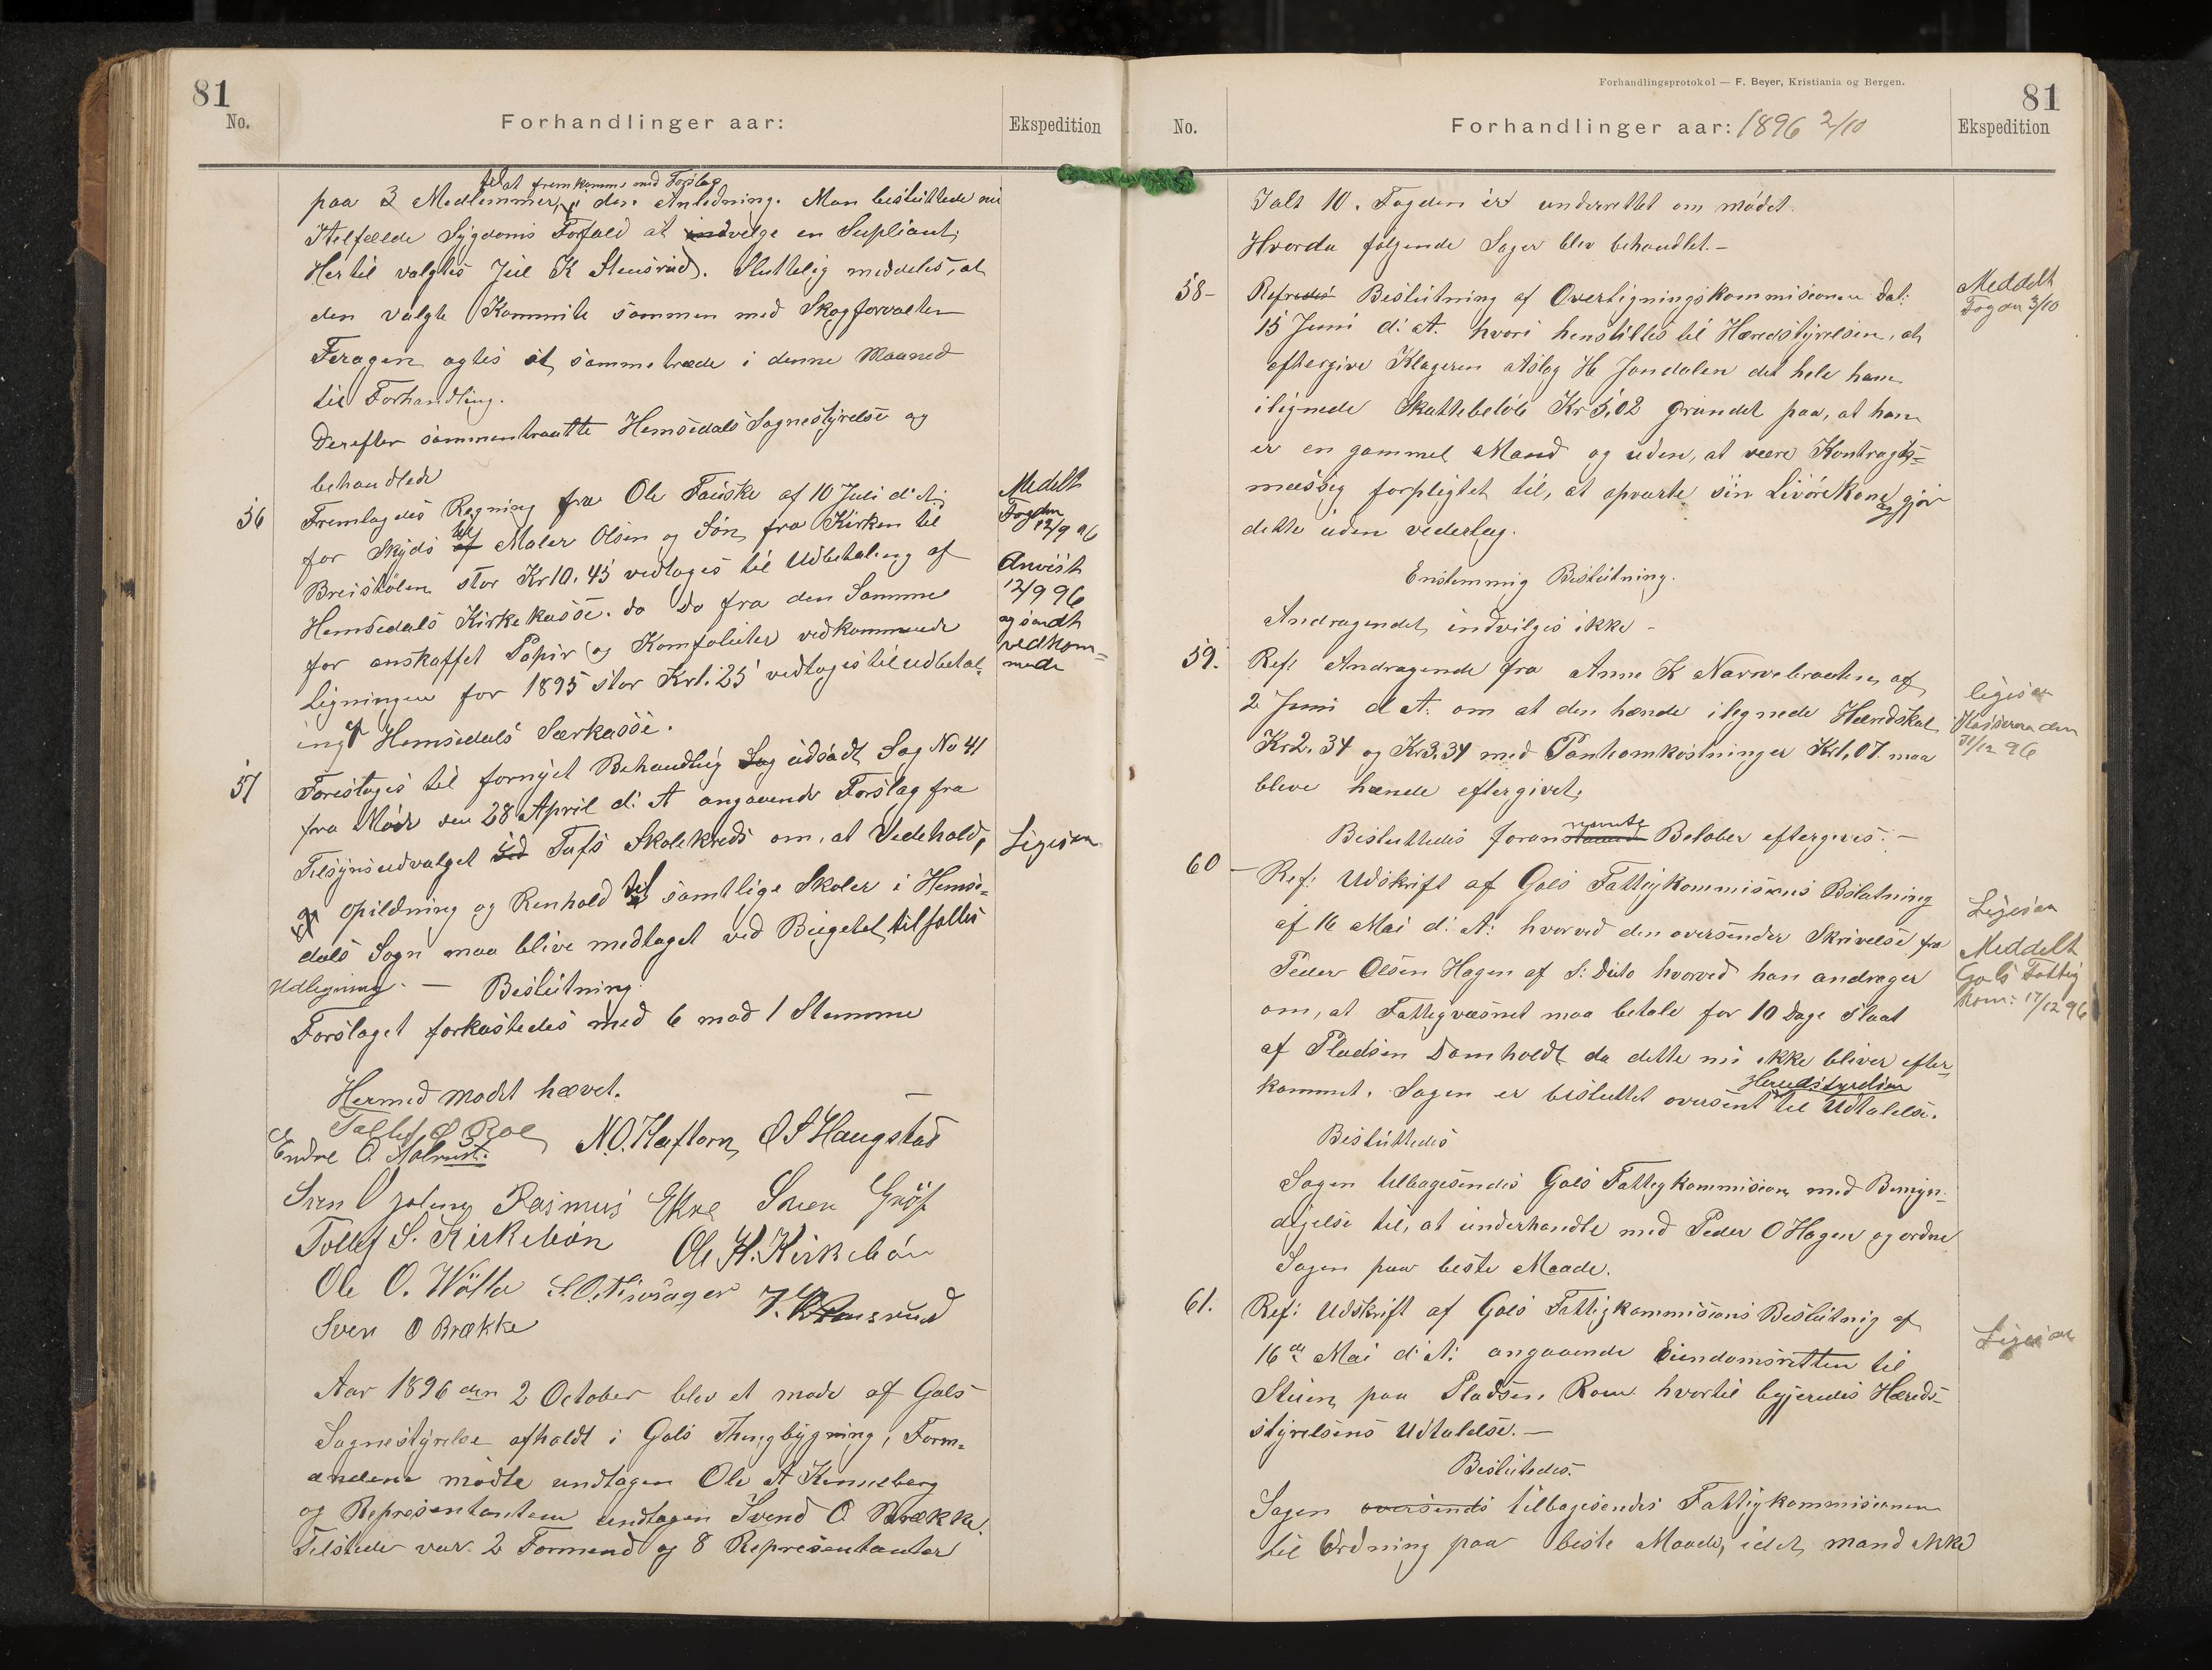 81
No.
Forhandlinger aar:
Ekspedition
til at fremkomme med Forslag
paa 3 Medlemmer, i den Anledning. Man besluttede nu
Itilfælde Sygdoms Forfald at indvelge en Supliant,
Hertil valgtes Juel K Stensrud. Sluttelig meddeles, at
den valgte Kommite sammen med Skogforvalter
Feragen agtes at sammetræde i denne Maaned
til Forhandling.
Derefter sammentraatte Hemsedals Sognestyrelse og
behandlede
56
Fremlagdes Regning fra Ole Fauske af 10 Juli d. A.
for Skyds til af Maler Olsen og Søn fra Kirken til
Breistølen stor Kr 10.45 vedtoges til Udbetaling af
Hemsedals Kirkekasse. do do fra den Samme
for anskaffet Papir og Komfoluter vedkommende
Ligningen for 1895 stor Kr 1.25 vedtoges til udbetal-
ing af Hemsedals Særkasse.
Medelt
Fogden
12/9 96
Anvist
12/9 96
og sendt
vedkom=
mende
57
Foretoges til fornyet Behandling Sag udsadt Sag No 41
fra Møde den 28 April d. A angaaende Forslag fra
Tilsynsudvalget ved Tufs Skolekreds om, at Vedehold,
og Opildning og Renhold til samtlige Skoler i Hemse-
dals Sogn maa blive medtaget ved Bugetet tilfælles
Udligning. — Beslutning.
Forslaget forkastedes med 6 mod 1 Stemme
Ligesaa
Hermed Mødet hævet.
Tollef O Roe N.O. Haftorn O S Haugstad
Endre O. Holmst.
Sven Rasmus Ekre Sven Grøf
Tollef S. Kirkebøn Ole H. Kirkebøn
Ole O. Wølla
Sven O Brække J. K Stensrud
Aar 1896 den 2 October blev et møde af Gols
Sognestyrelse afholdt i Gols Thingbygning, Form-
ændene mødte undtagen Ole A Kinneberg
og Representanterne undtagen Svend O Brække.
Tilstede var 2 Formend og 8 Representanter
Forhandlingsprotokol — F. Beyer, Kristiania og Bergen.
81
No.
Forhandlinger aar: 1896 2/10
Ekspedition
Ialt 10. Fogden er underrettet om mødet.
Hvorda følgende Sager blev behandlet. -
58-
Refredes Beslutning af Overligningskommisionen dat:
15 Juni d. A. hvori henstilles til Hæredstyrelsen, at
eftergive Klageren Aslag H Jondalen det hele ham
ilignede Skattebeløb Kr 5,02 grundet paa, at han
er en gammel Mand og uden, at være Kontragts=
mæssig forpligtet til, at opvarte sin Livørekone og gjør
dette uden vederlag.
Enstemmig Beslutning.
Andragendet indvilges ikke -
Meddelt
Fogden 3/10
59.
Ref: Andragende fra Anne K Narvebraaten af
2 Juni d A. om at den hænde ilignede Hæredskat
Kr 2.34 og Kr 3.34 med Panteomkostninger Kr 1.07 maa
bleve hænde eftergivet,
Besluttedes forannævnte Beløber eftergives. -
ligesaa
Kassereren den
31/12 96
60 -
Ref: Udskrift af Gols Fattigkommisions Beslutning
af 16 Mai d. A. hvorved den oversender Skrivelse fra
Peder Olsen Hagen af S. Dito hvorved han andrager
om, at Fattigvæsnet maa betale for 10 Dage Slaat
af Pladsen Domholdt da dette nu ikke bliver efter-
kommet. Sagen er besluttet oversent Heredstyrelsen til Udtalelse.
Besluttedes
Sagen tilbagesendes Gols Fattigkommision med Bemyn-
digelse til, at underhandle med Peder O Hagen og ordne
Sagen paa beste Maade.
Ligesaa
Meddelt
Gols Fattig
kom: 17/12 96
61.
Ref: Udskrift af Gols Fattigkommisions Beslutnig af
16de Mai d. A. angaaende Eiendomsretten til
Stuen paa Pladsen Rom hvortil begjeredes Hæreds-
styrelsens Udtalelse. —
Beslutedes.
Sagen oversendes tilbagesendes Fattigkommisionen
til Ordning paa beste Maade, idet mand ikke
Ligesaa